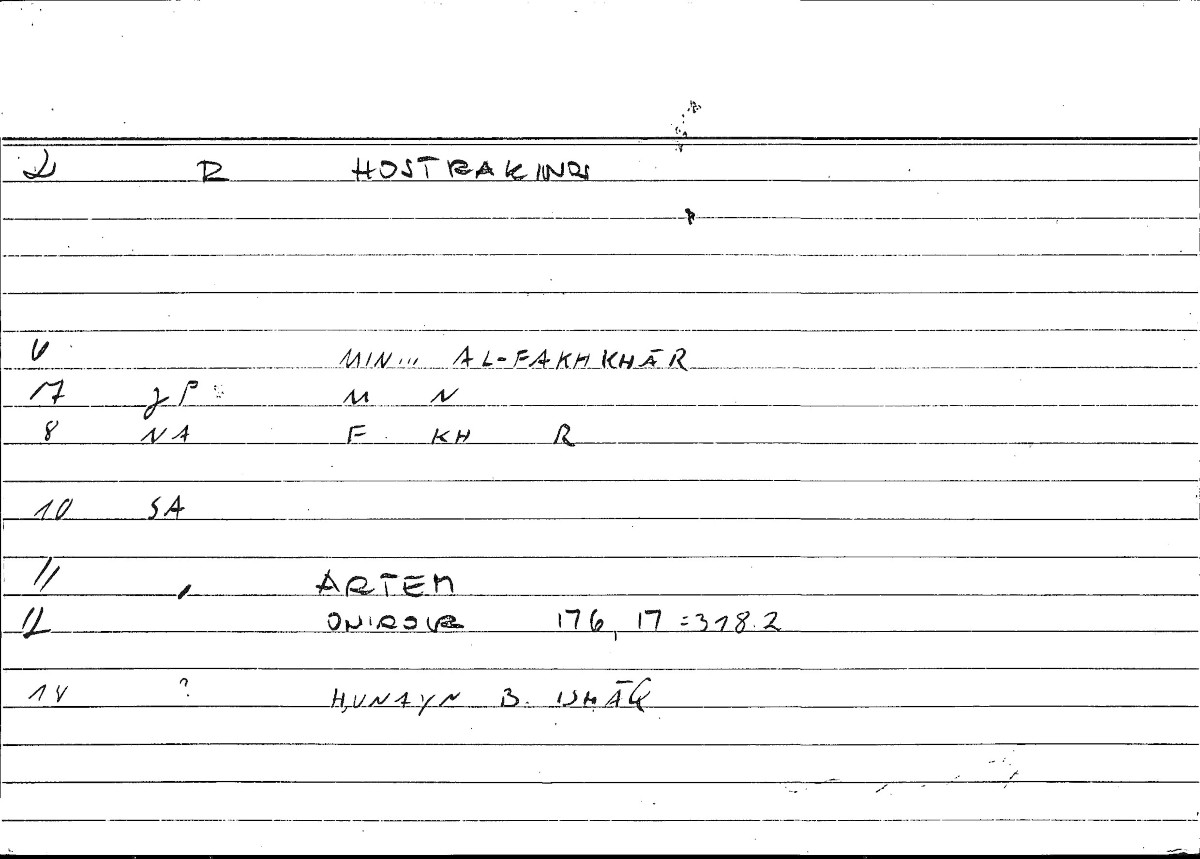 2 R HOSTRAKINOS
6 MIN... AL-FAKHKHĀR
17 gP M N
8 NA F KH R
10 SA
11 , ARTEM
12 ONIROCR 176, 17 = 318.2
14 ? H,UNAYN B. ISHĀQ